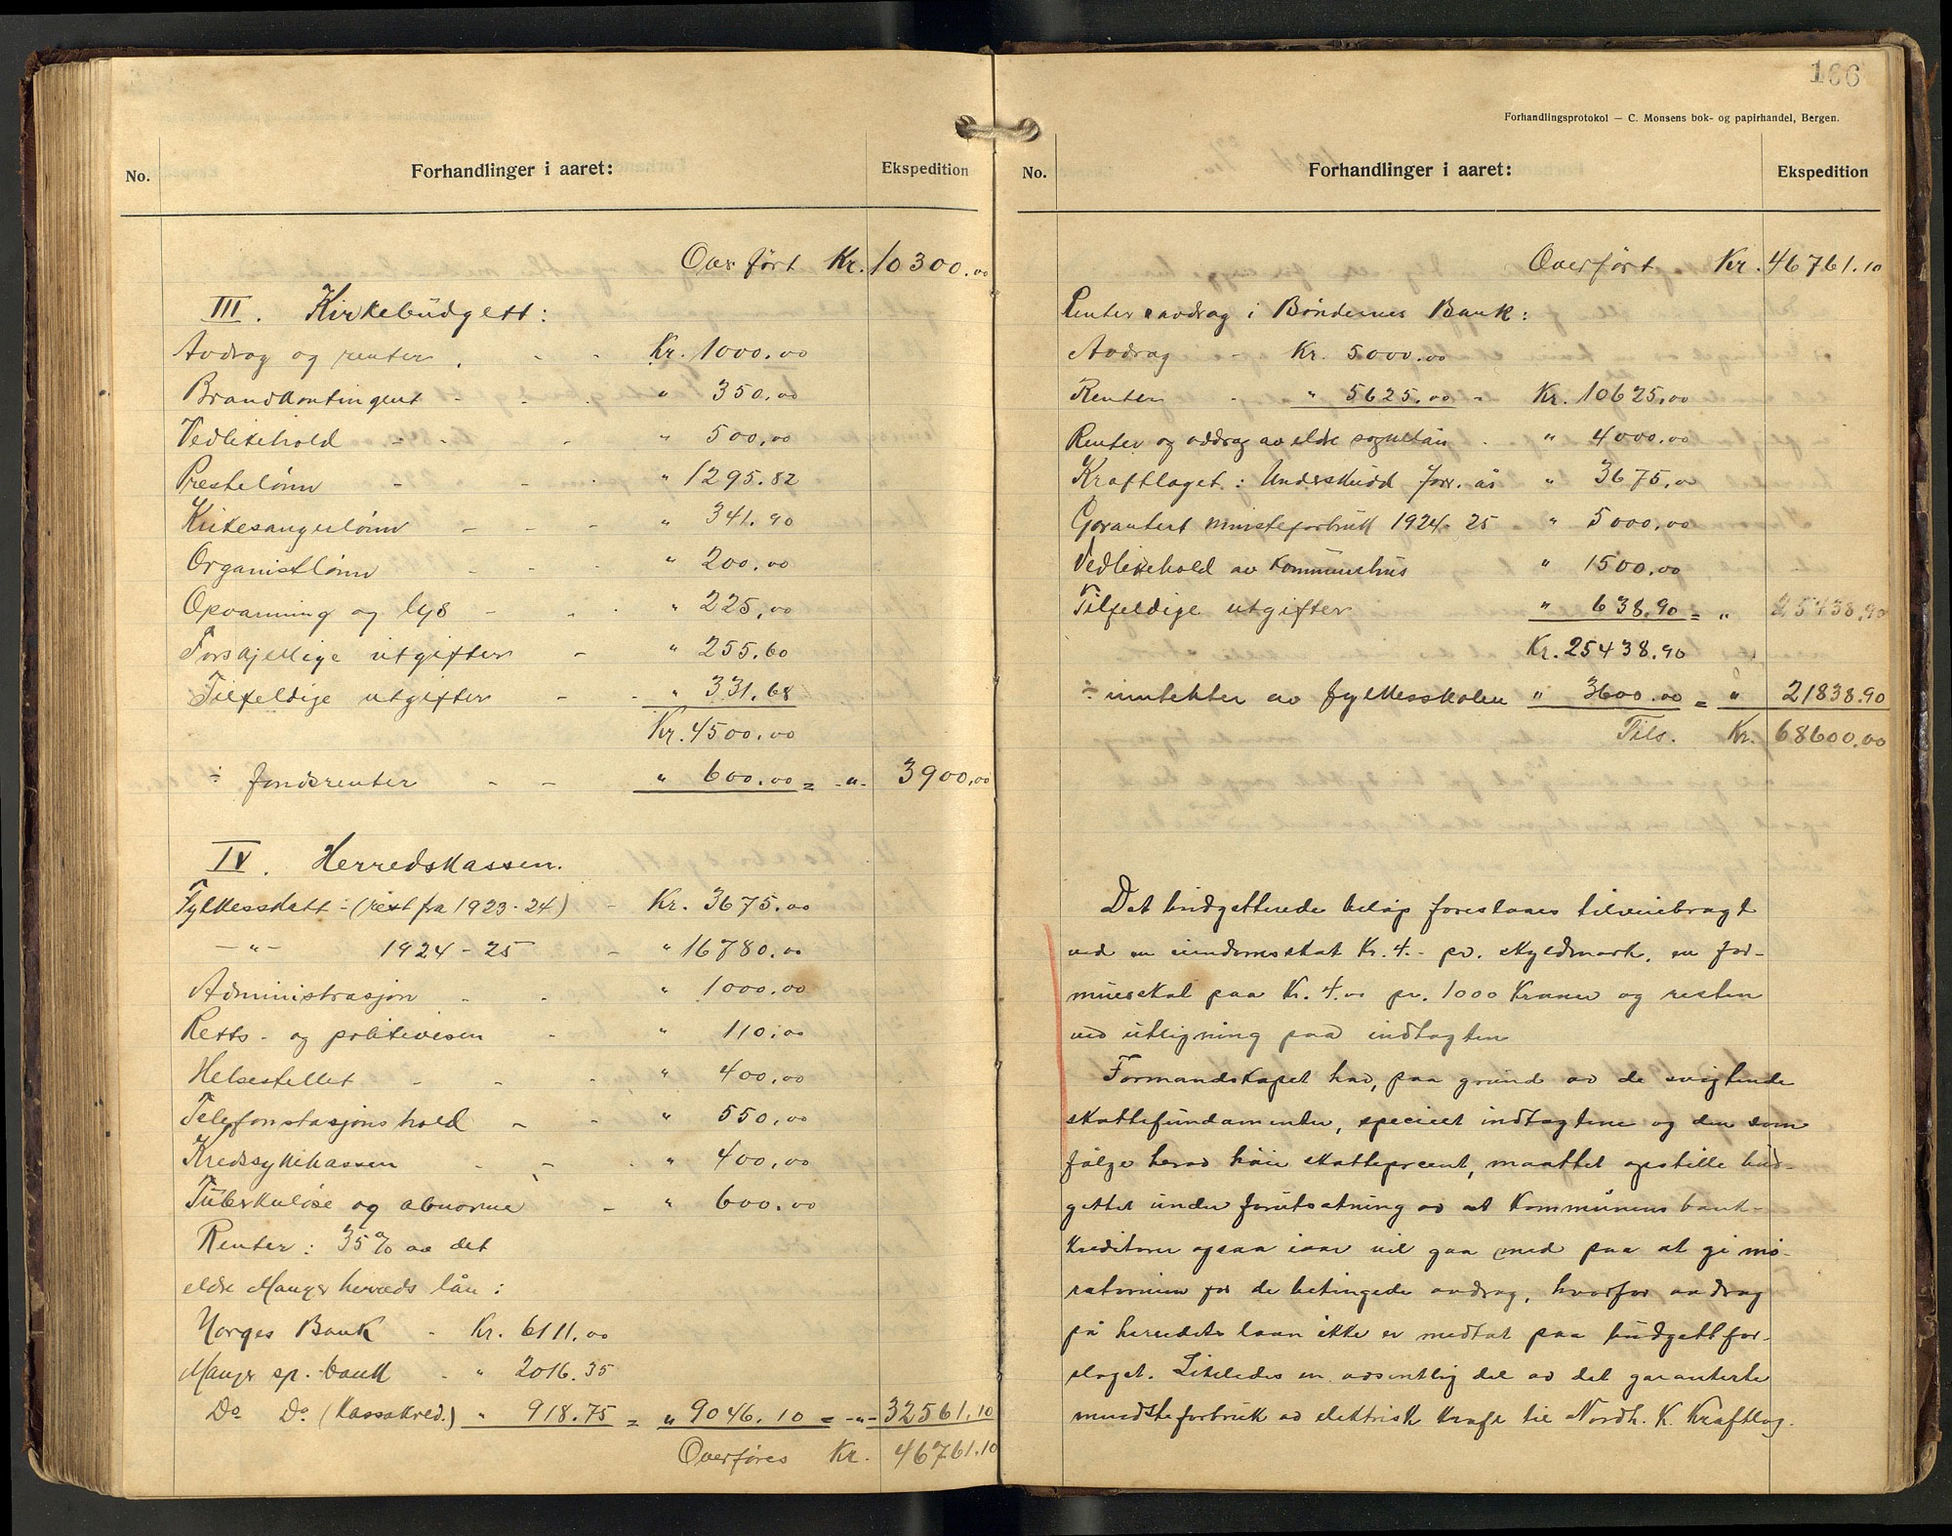 No.
Forhandlinger i aaret:
Ekspedition
Overført Kr. 10300.00
III. Kirkebudgett:
Avdrag og renter Kr. 1000.00
Brandkontingent " 350.00
Vedlikehold " 500.00
Prestelønn " 1295.82
Kirkesangerlønn " 341.90
Organistlønn " 200.00
Opvarming og lys " 225.00
Forskjellige utgifter " 255.60
Tilfeldige utgifter " 331.68
Kr. 4500.00
÷ fondsrenter " 600.00 = -"- 3900.00
IV. Herredskassen.
Fylkesskatt - (rest fra 1923-24) - Kr. 3675.00
-"- 1924-25 - " 16780.00
Administrasjon " 1000.00
Retts- og politivesen " 110.00
Helsestellet " 400.00
Telefonstasjonshold " 550.00
Kredssykekassen " 400.00
Tuberkuløse og abnorme " 600.00
Renter: 35% av det
eldre Manger herreds lån:
Norges Bank - Kr. 6111.00
Manger sp. bank - " 2016.35
Do Do (Kassakred.) " 918.75 = " 9046.10 = -"- 32561.10
Overføres Kr. 46761.10
166
Forhandlingsprotokol — C. Monsens bok- og papirhandel, Bergen.
No.
Forhandlinger i aaret:
Ekspedition
Overført Kr. 46761.10
Renter & avdrag i Bøndernes Bank:
Avdrag - Kr. 5000.00
Renter - " 5625.00 - Kr. 10625.00
Renter og avdrag av eldre sognelån - " 4000.00
Kraftlaget: Underskudd forr. år " 3675.00
Garantert minsteforbruk 1924-25 " 5000.00
Vedlikehold av kommunehus " 1500.00
Tilfeldige utgifter " 638.90 = " 25438.90
Kr. 25438.90
÷ inntekter av fylkesskolen " 3600.00 = " 21838.90
Tils. Kr. 68600.00
Det budgetterede beløp foreslaaes tilveiebragt
ved en eiendomsskat Kr. 4.- pr. skyldmark, en for-
mueskat paa Kr. 4.00 pr. 1000 Kroner og resten
ved utligning paa indtægten
Formandskapet har, paa grund av de svigtende
skattefundamenter, specielt indtægtene og den som
følge herav høie skatteprocent, maattet opstille bud-
gettet under forutsætning av at Kommunens bank-
kreditorer ogsaa iaar vil gaa med paa at gi mo-
ratorium for de betingede avdrag, hvorfor avdrag
på herredets laan ikke er medtat paa budgettfor-
slaget. Likeledes en væsentlig del av det garanterte
mindsteforbruk av elektrisk kraft til Nordh. K. Kraftlag.